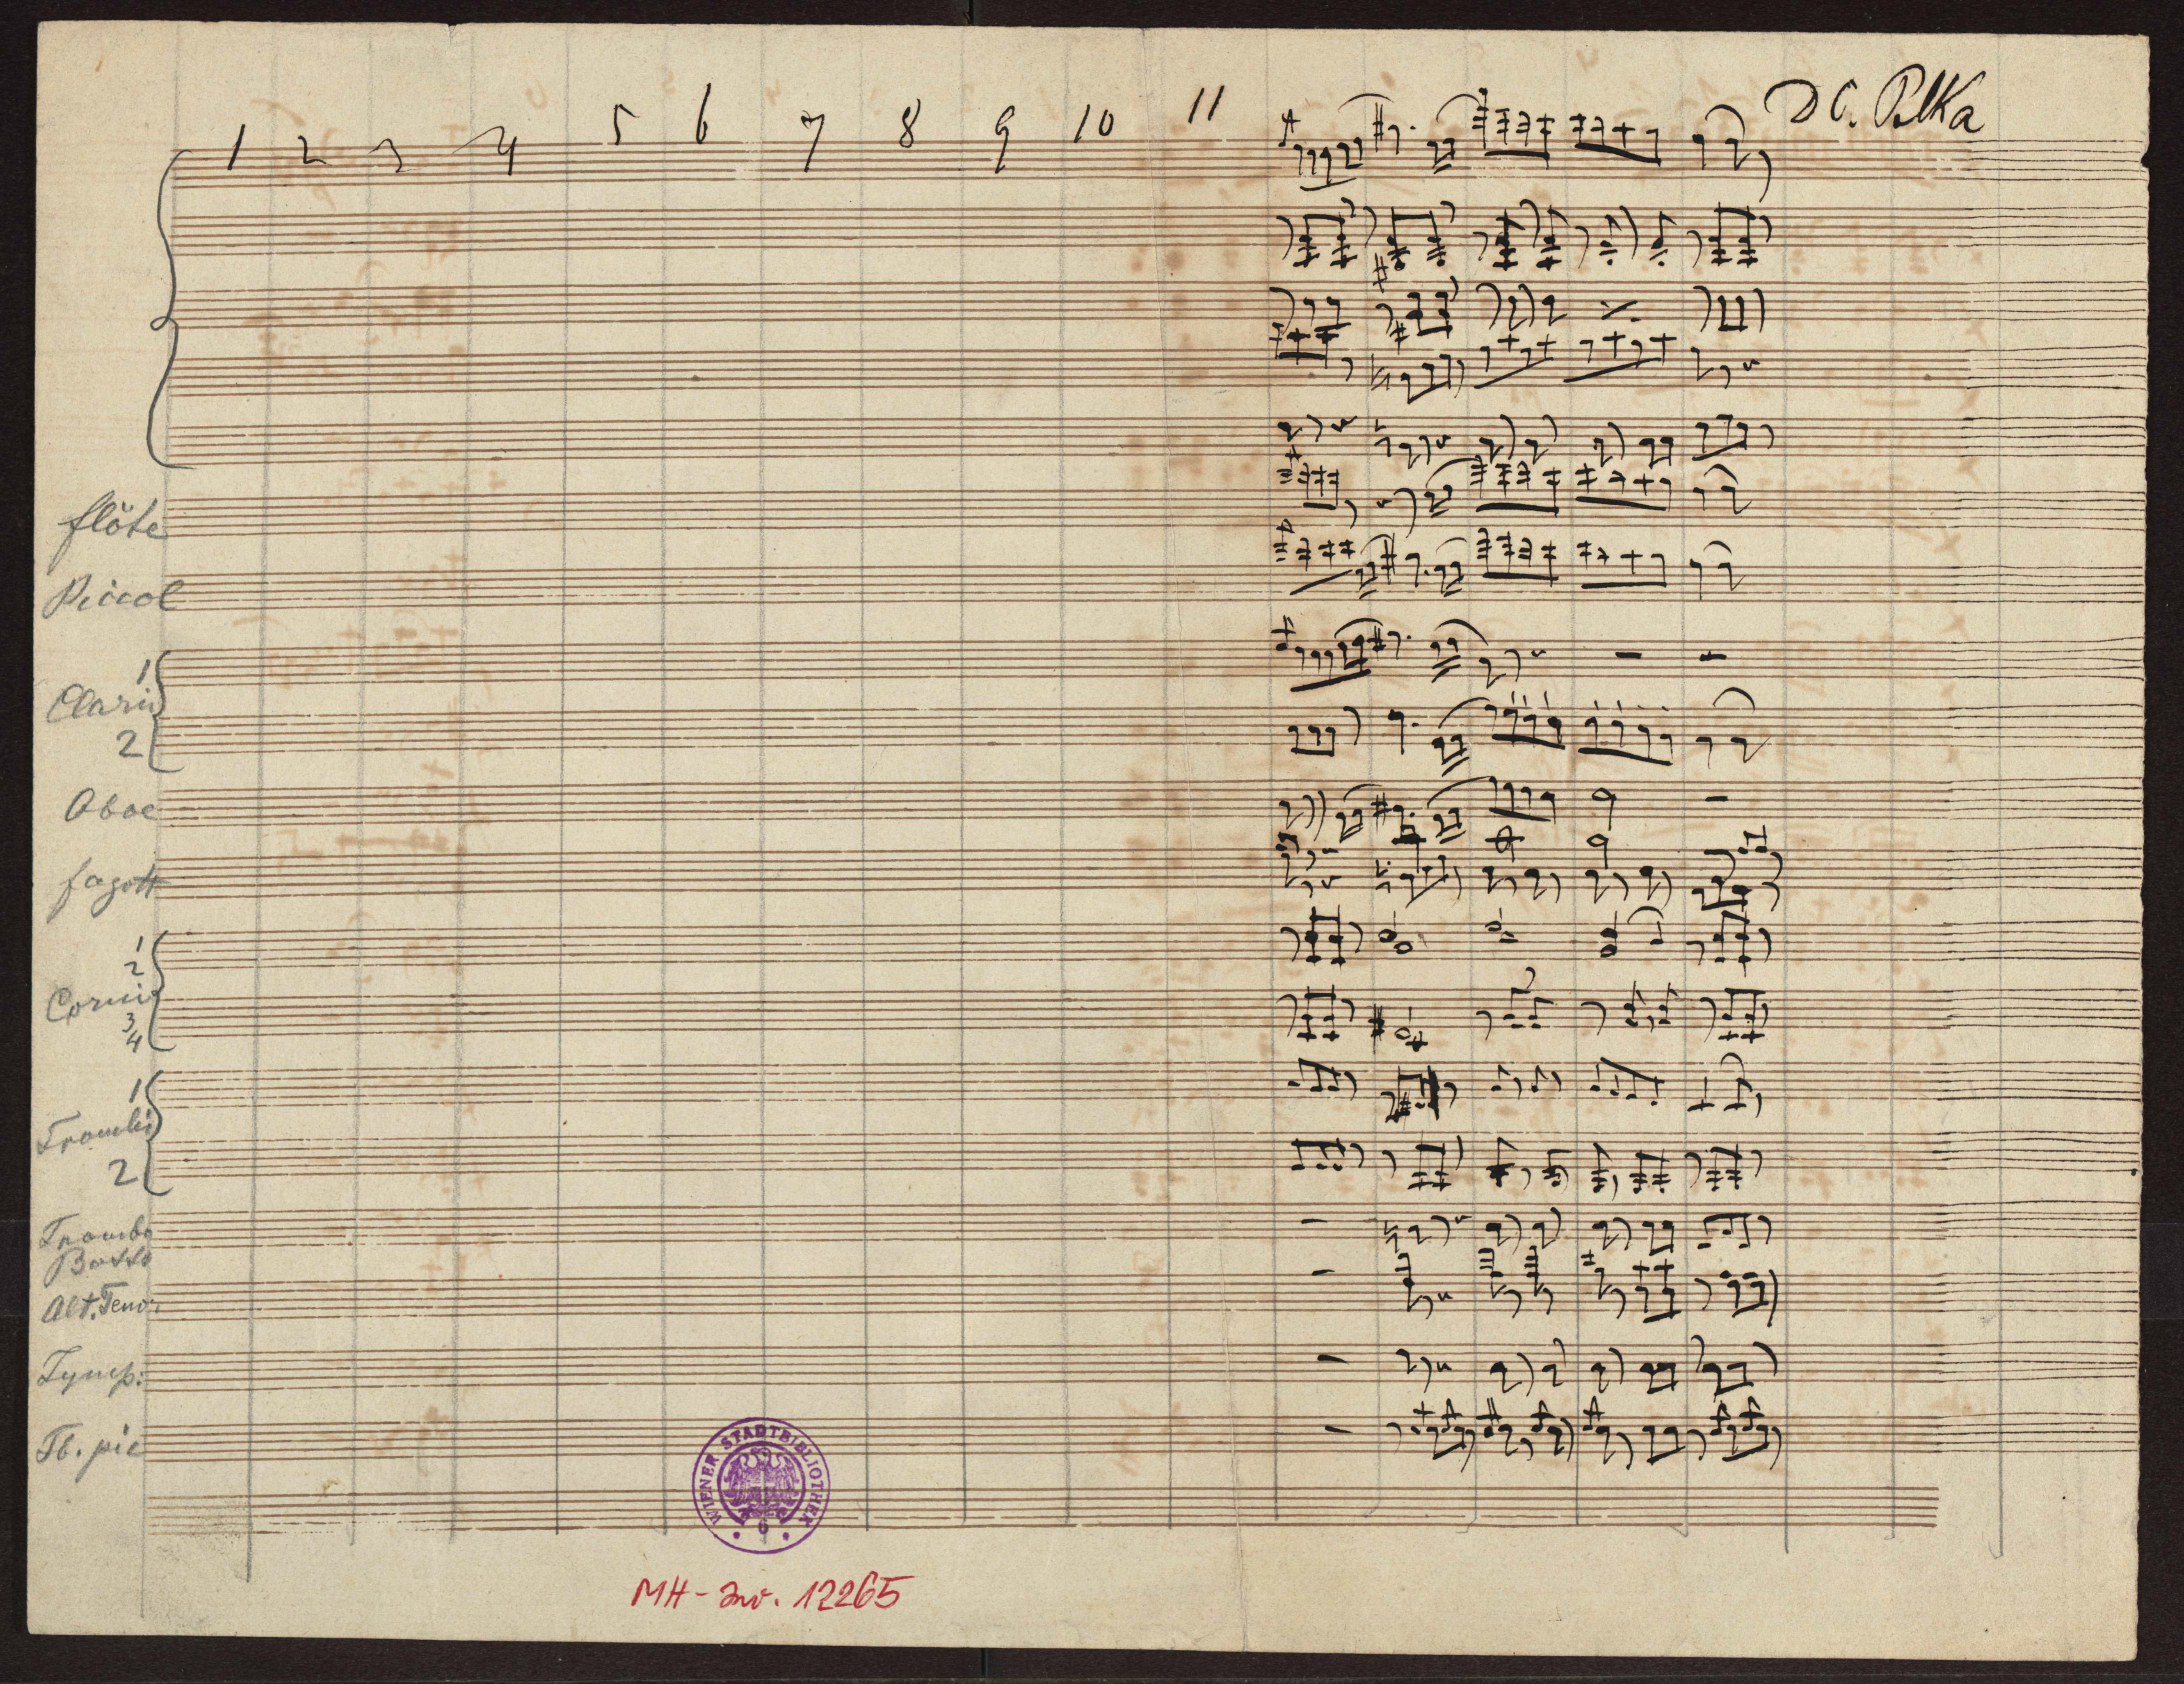 1 2 3 4 5 6 7 8 9 10 11 DC. Polka
flöte
Piccol
1
Clarin
2
Oboe
fagott
1
2
Corni
3
4
1
Trombi
2
Trombo
Basso
Alt. Tenor
Tymp:
Tb. pic
WIENER STADTBIBLIOTHEK
6
MH-Inv. 12265